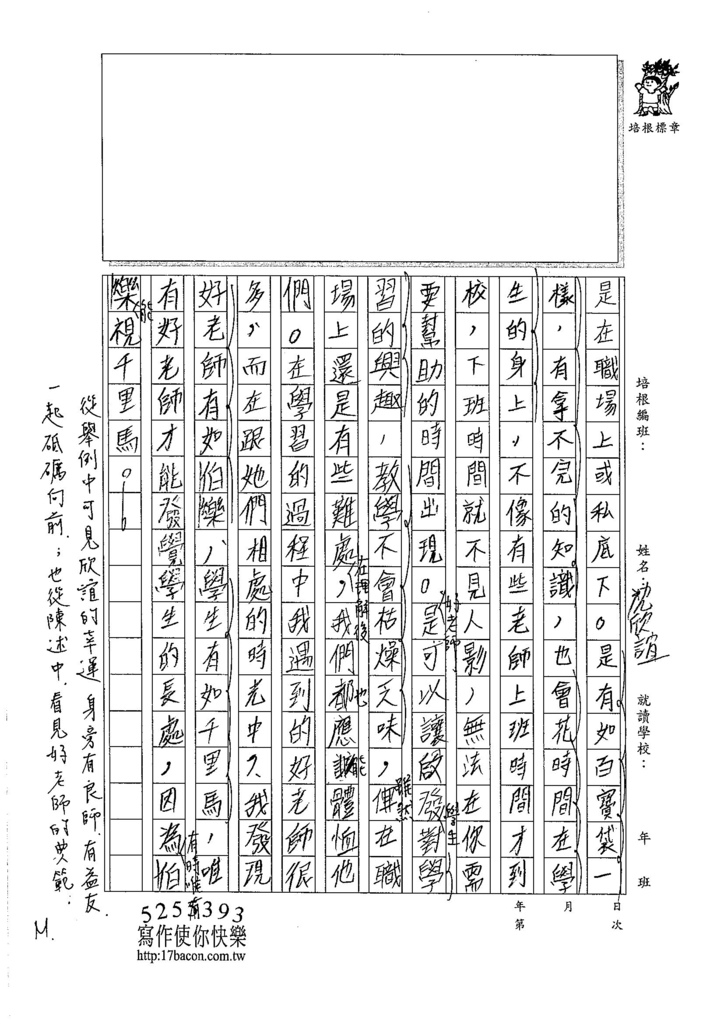 培根標章
培根編班：
姓名：沈欣誼
就讀學校：
年 班
年 月 日
第 次
是在職場上或私底下。是有如百寶袋一
樣，有拿不完的知識，也會花時間在學
生的身上，不像有些老師上班時間才到
校，下班時間就不見人影，無法在你需
要幫助的時間出現。是可以讓啟發對學
好老師
學生
習的興趣，教學不會枯燥乏味，俥在職
雖然
場上還是有些難處，我們都應該體恤他
在理解後
也
能
們。在學習的過程中我遇到的好老師很
多，而在跟她們相處的時光中，我發現
好老師有如伯樂，學生有如千里馬，唯
有好老師才能發覺學生的長處，因為伯
有時唯有
樂視千里馬。
能
從舉例中可見欣誼的幸運，身旁有良師、有益友，
一起砥礪向前；也從陳述中，看見好老師的典範。
M.
5255393
寫作使你快樂
http:17bacon.com.tw